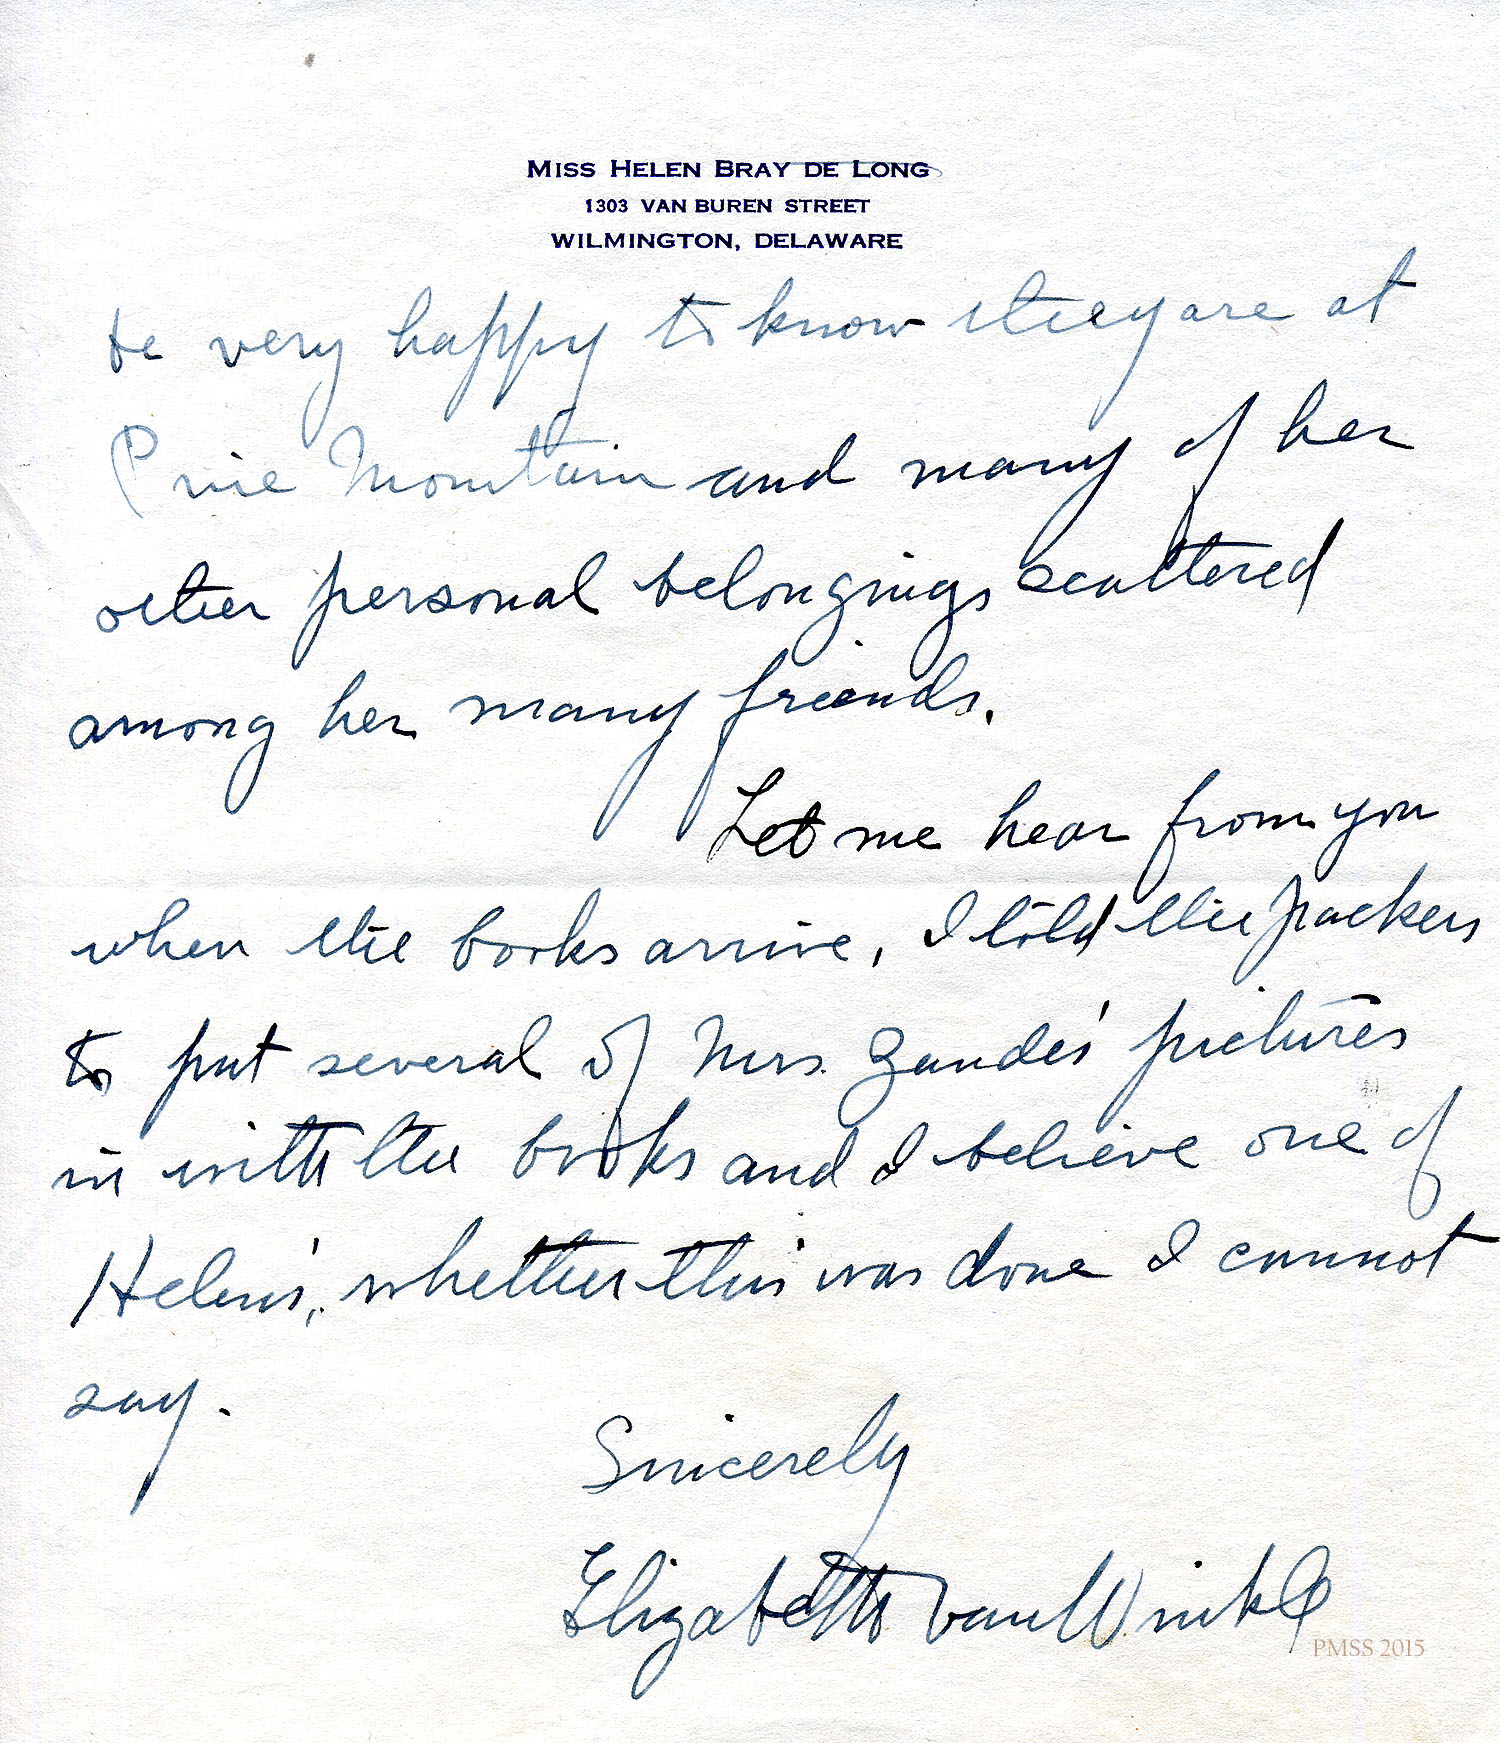 MISS HELEN BRAY DE LONG
1303 VAN BUREN STREET
WILMINGTON, DELAWARE
be very happy to know they are at
Pine Mountain and many of her
other personal belongings scattered
among her many friends.
Let me hear from you
when the books arrive, I told the packers
to put several of Mrs. Zande's pictures
in with the books and I believe one of
Helen's, whether this was done I cannot
say.
Sincerely
Elizabeth van Winkle
PMSS 2015